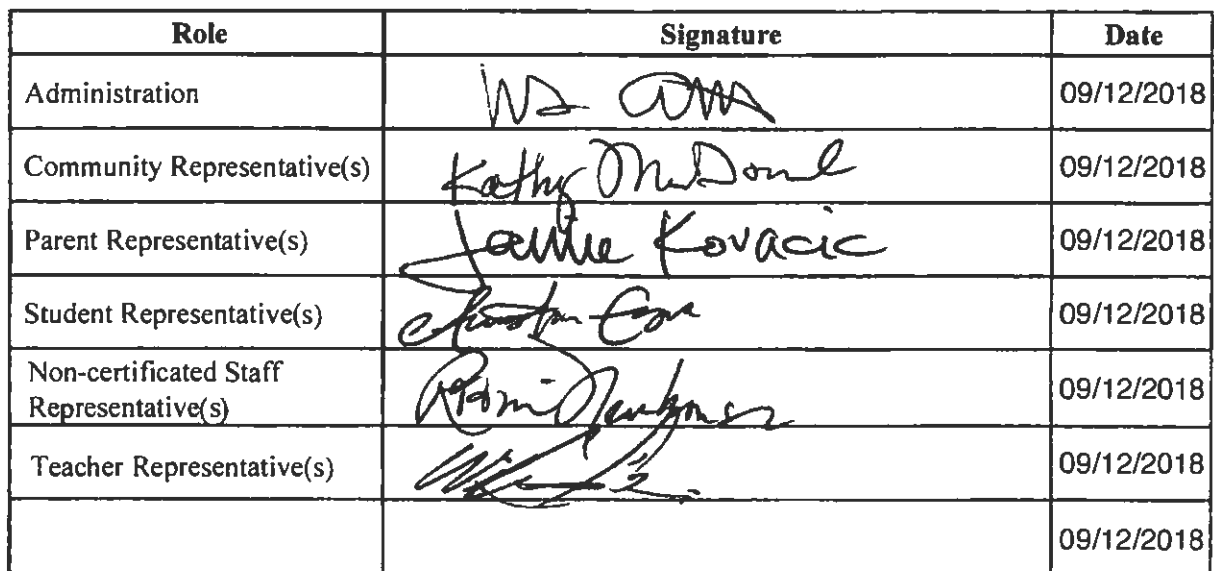 Role Signature Date
Administration 09/12/2018
Community Representative(s) Kathy 09/12/2018
Parent Representative(s) Kovacic 09/12/2018
Student Representative(s) 09/12/2018
Non-certificated Staff
Representative(s) 09/12/2018
Teacher Representative(s) 09/12/2018
09/12/2018